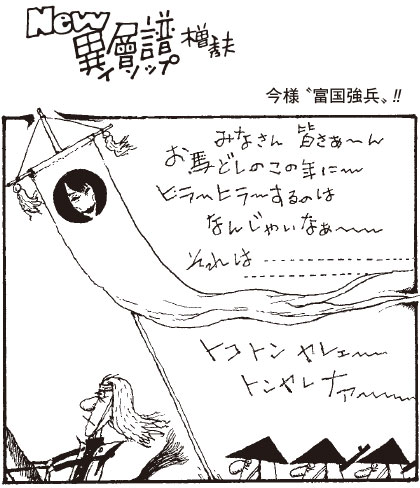 New
異層譜
イソップ
今様〝富国強兵〟!!
みなさん 皆さぁ〜ん
お馬どしのこの年に〜
ヒラ〜ヒラ〜するのは
なんじゃいなぁ〜〜
それは
トコトン ヤレェ〜〜
トンヤレ ナァ〜〜